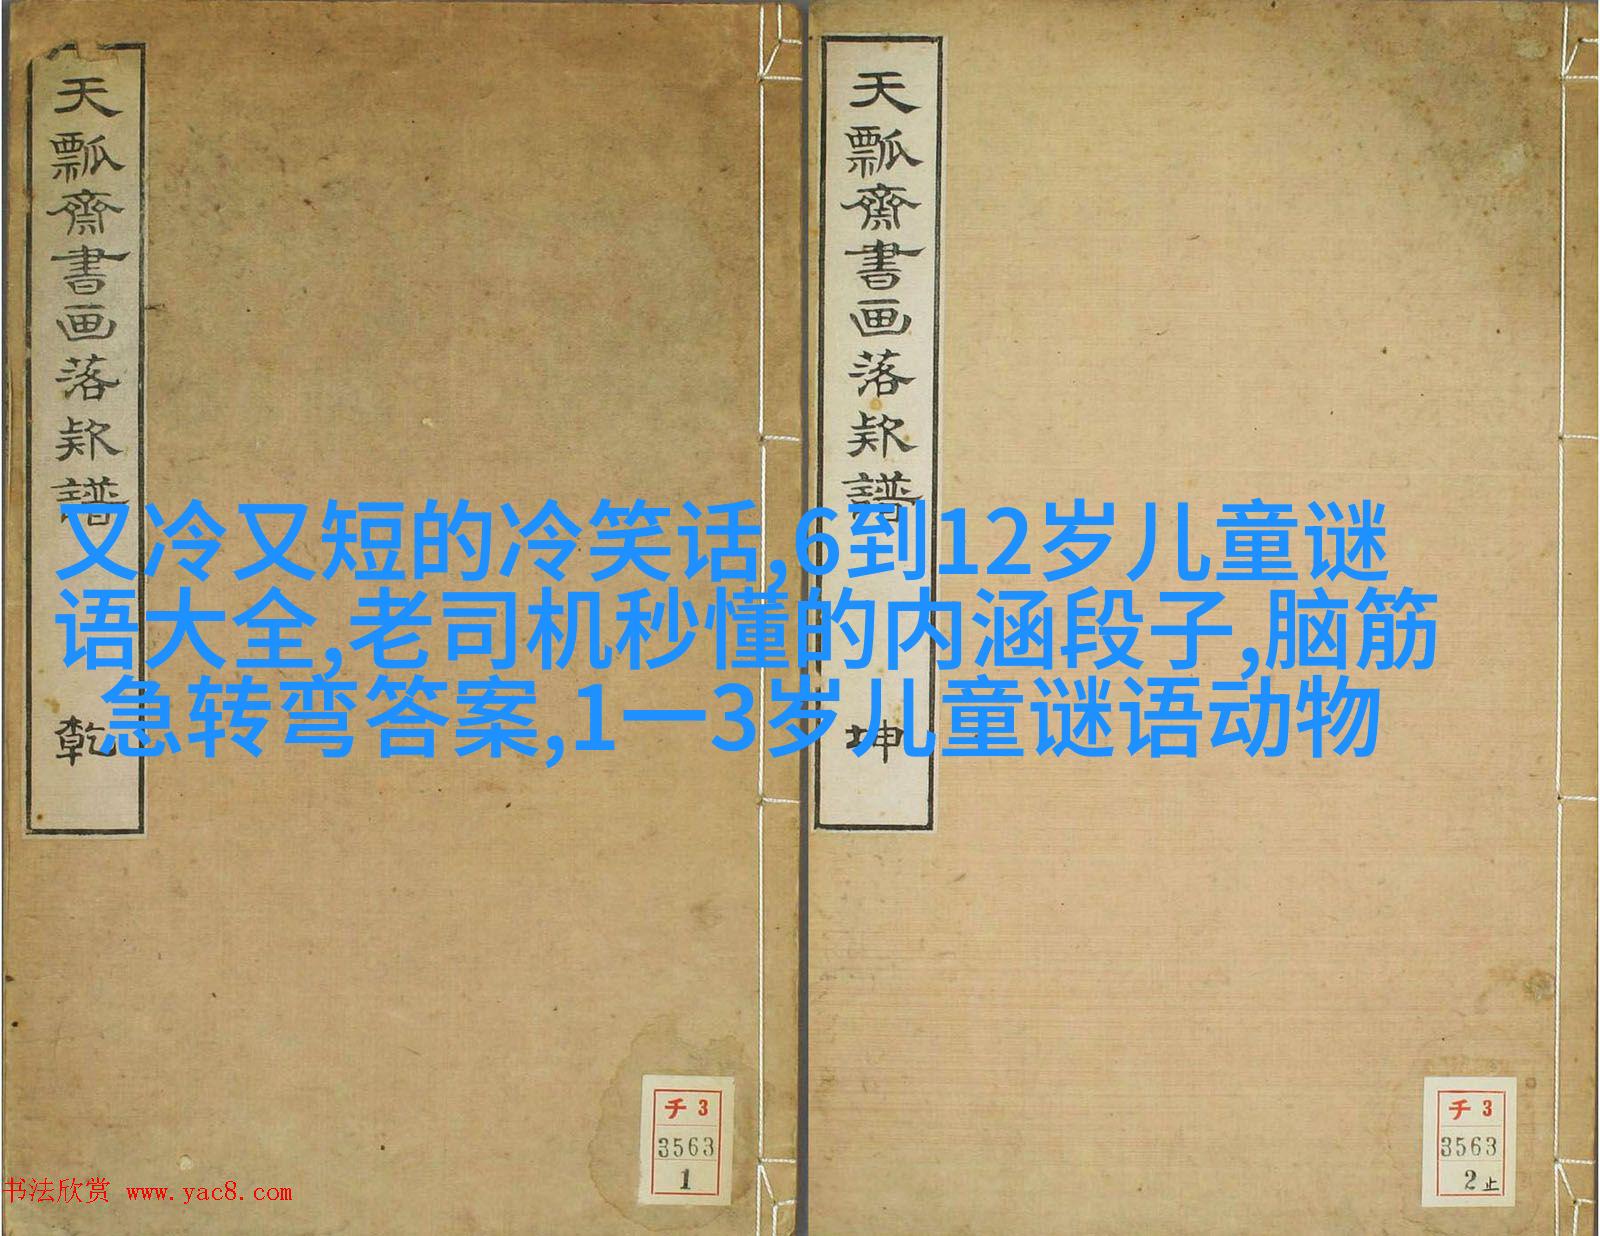 天瓢齋書画落欵譜
乾
天瓢齋書画落欵譜
坤
又冷又短的冷笑话,6到12岁儿童谜
语大全,老司机秒懂的内涵段子,脑筋
急转弯答案,1一3岁儿童谜语动物
チ 3
3563
1
チ 3
3563
2止
书法欣赏 www.yac8.com